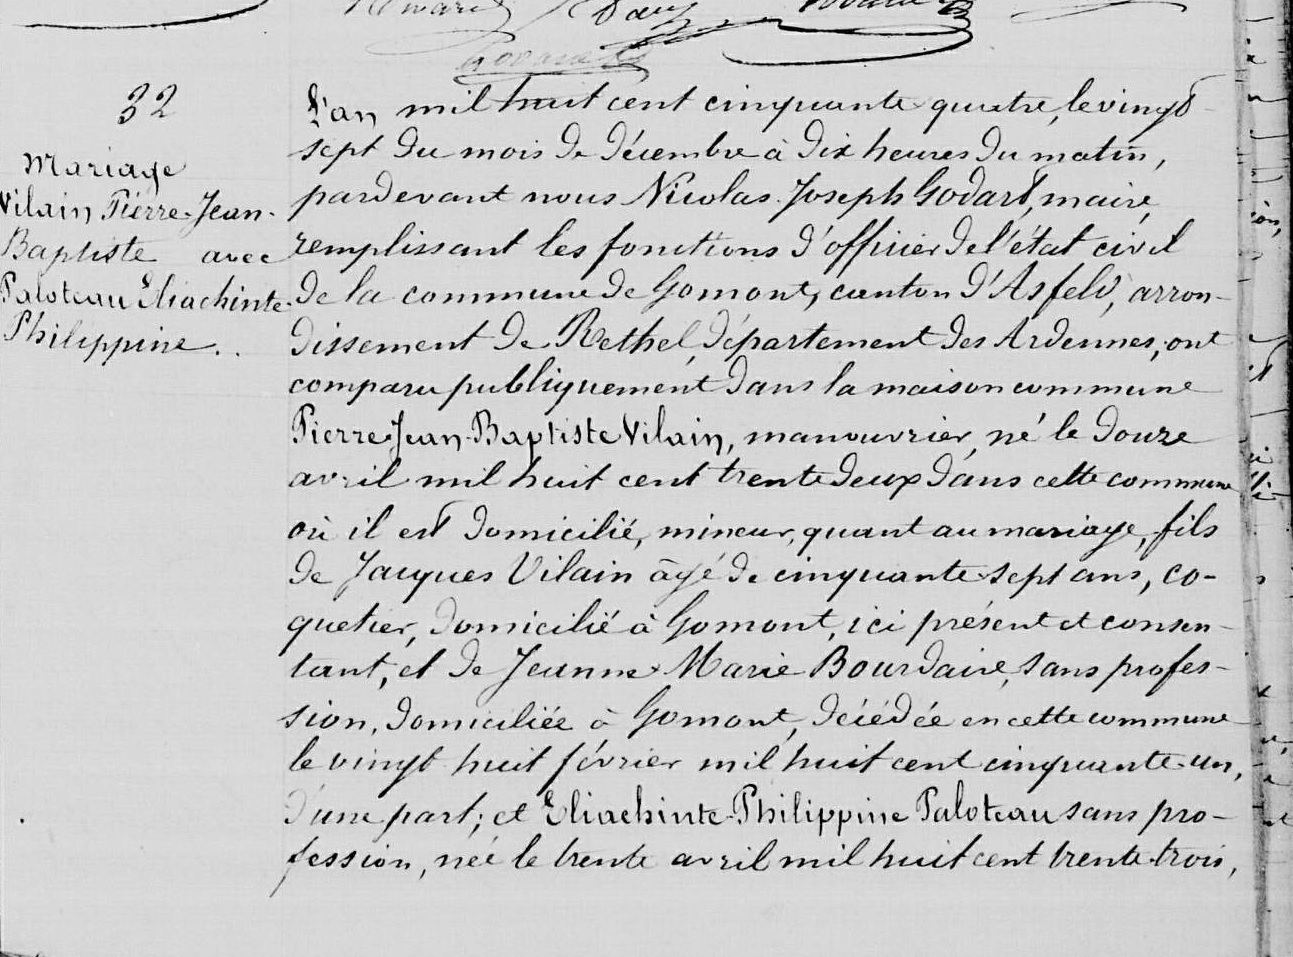 32
Mariage
Vilain Pierre-Jean-
Baptiste avec
Paloteau Eliachinte-
Philippine..
L'an mil huit cent cinquante quatre, le vingt
sept du mois de décembre à dix heures du matin,
pardevant nous Nicolas Joseph Godart, maire,
remplissant les fonctions d'officier de l'état civil
de la commune de Gomont, canton d'Asfeld, arron-
dissement de Rethel, département des Ardennes, ont
comparu publiquement dans la maison commune
Pierre-Jean-Baptiste Vilain, manouvrier, né le douze
avril mil huit cent trente deux dans cette commune
où il est domicilié, mineur, quant au mariage, fils
de Jacques Vilain âgé de cinquante sept ans, co-
quetier, domicilié à Gomont, ici présent et consen-
tant, et de Jeanne Marie Bourdaire, sans profes-
sion, domiciliée à Gomont, décédée en cette commune
le vingt huit février mil huit cent cinquante un,
d'une part; et Eliachinte-Philippine Paloteau sans pro-
fession, née le trente avril mil huit cent trente trois,